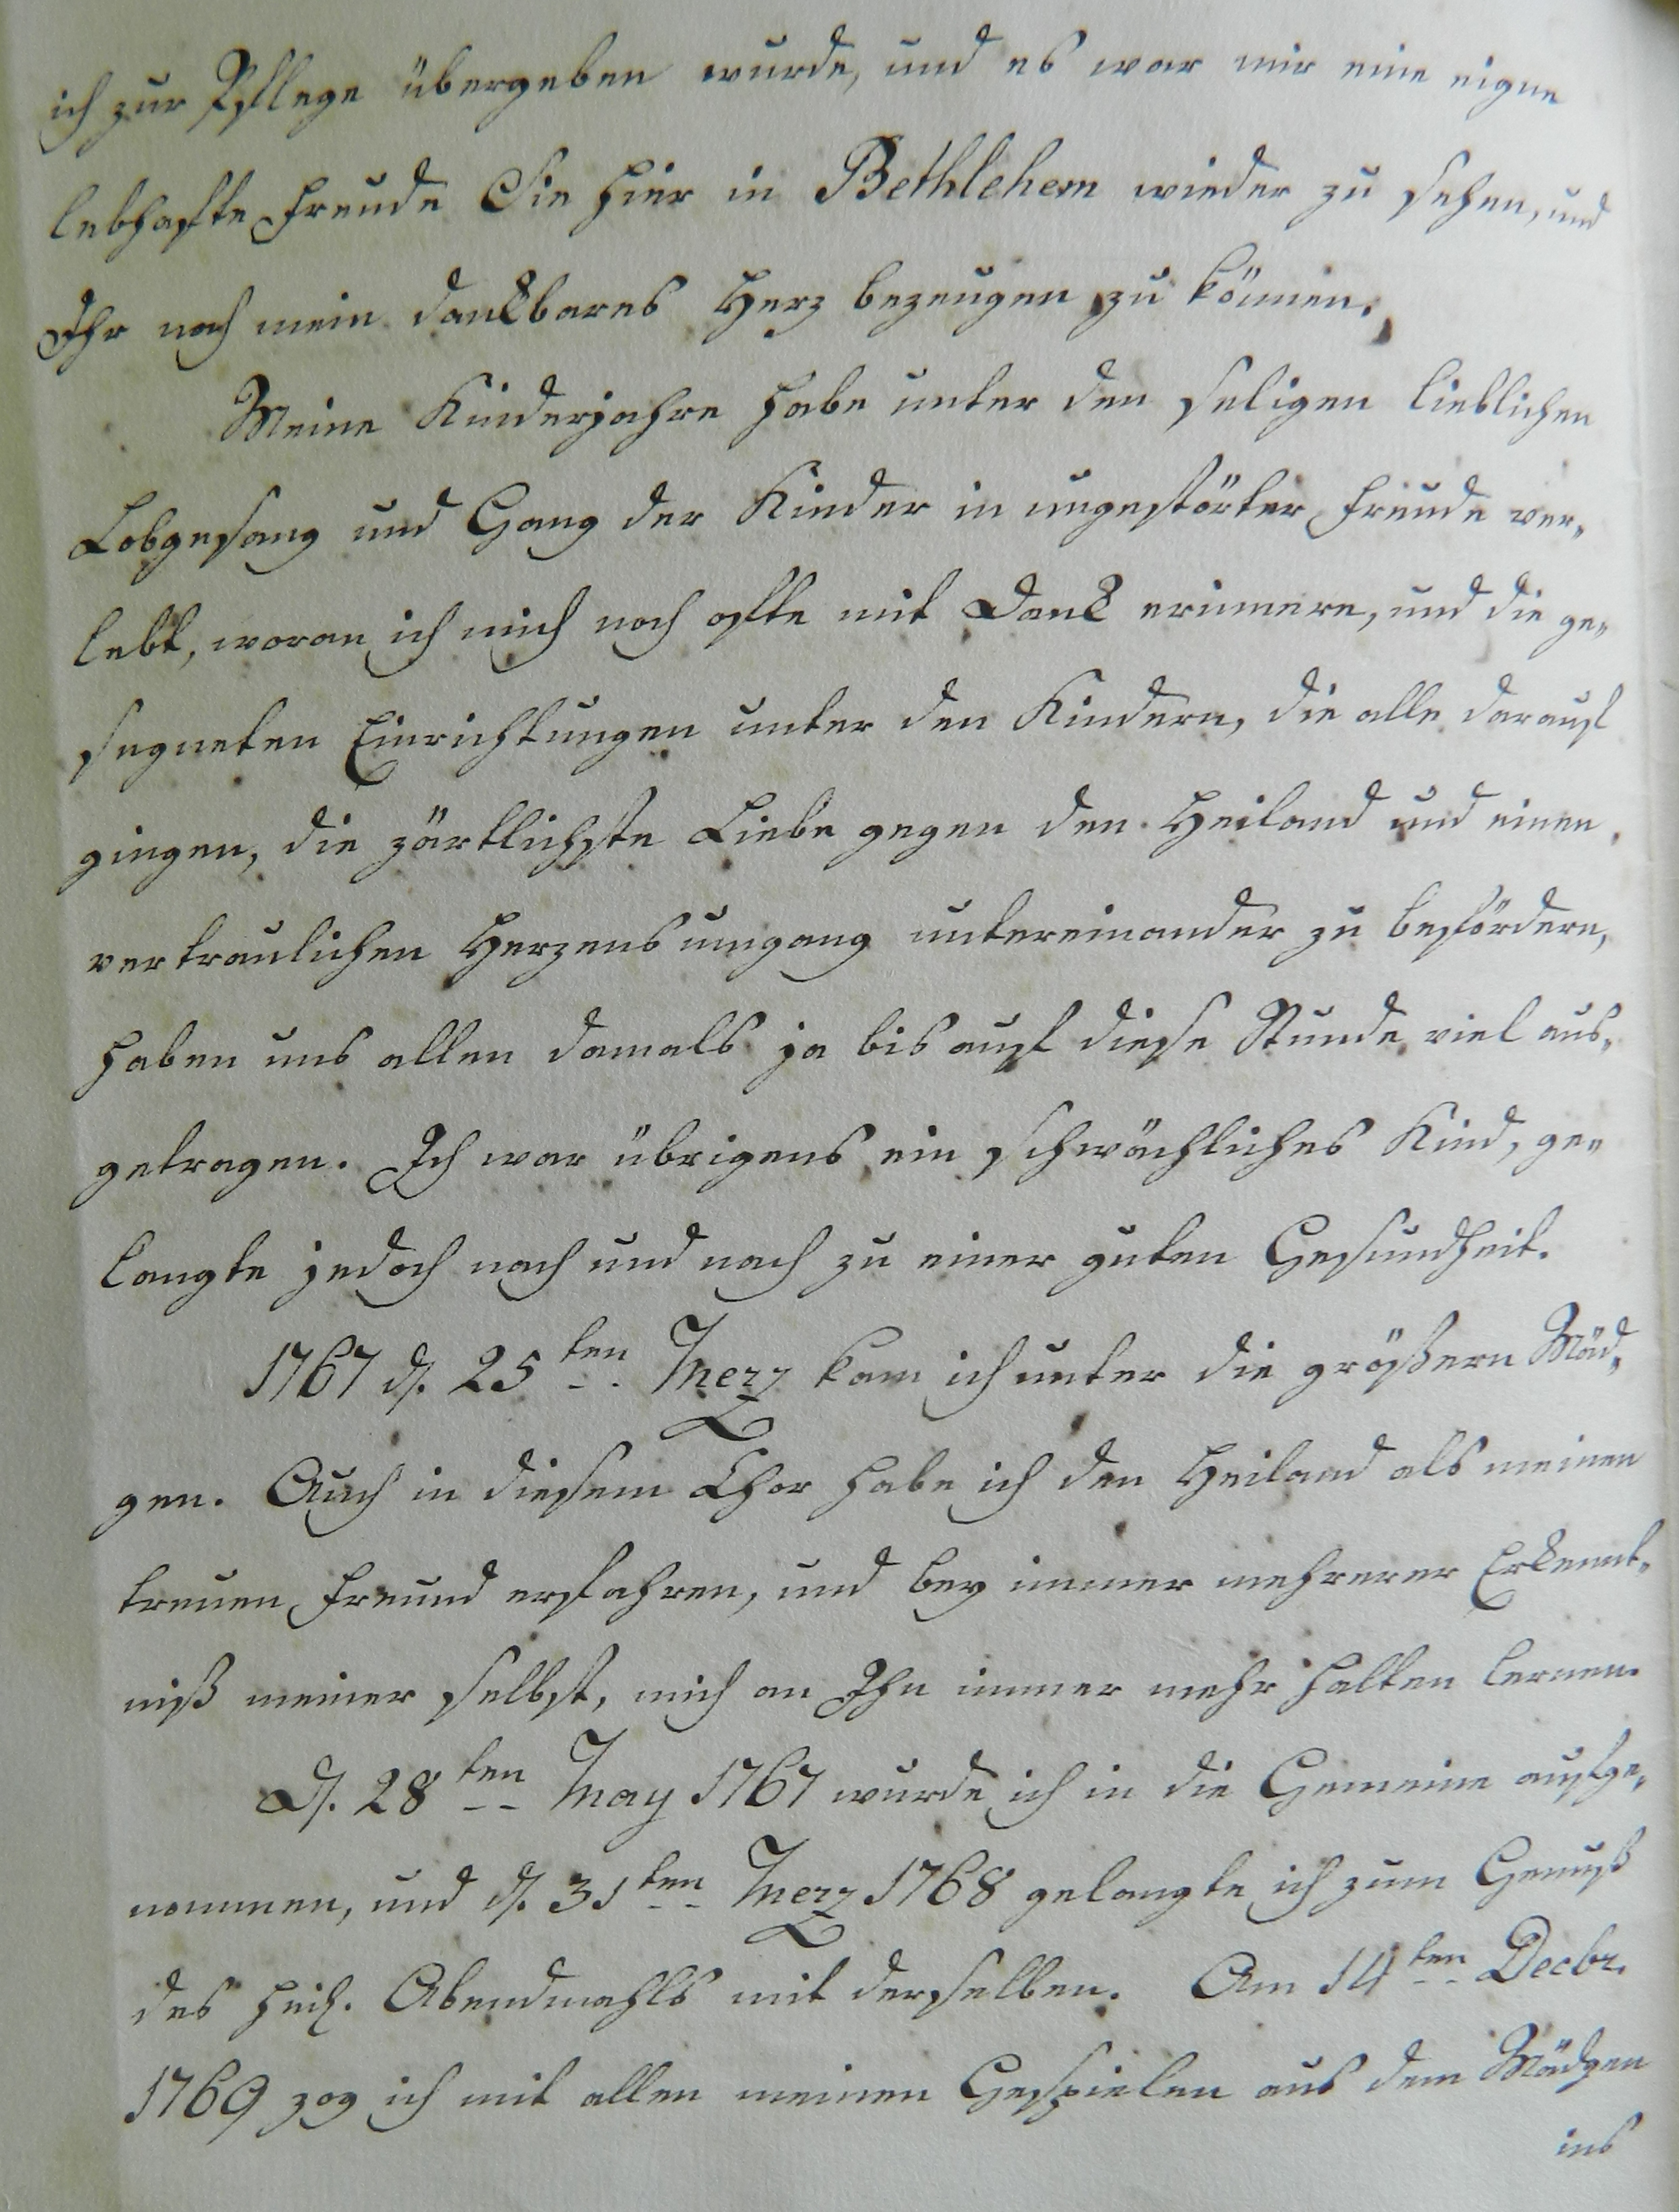 ich zur Pflege übergeben wurde, und es war mir eine eigne
lebhafte Freude Sie hier in Bethlehem wieder zu sehen, und
Ihr noch mein dankbares Herz bezeugen zu können.
Meine Kinderjahre habe unter den seligen lieblichen
Lobgesang und Gang der Kinder in ungestörter Freude ver-
lebt, woran ich mich noch ofte mit Dank erinnere, und die ge-
segneten Einrichtungen unter den Kindern, die alle darauf
gingen, die zärtlichste Liebe gegen den Heiland und einen
vertraulichen Herzensumgang untereinander zu befördern,
haben uns allen damals ja bis auf diese Stunde viel aus-
getragen. Ich war übrigens ein schwächliches Kind, ge-
langte jedoch nach und nach zu einer guten Gesundheit.
1767 d. 25ten Merz kam ich unter die größern Mäd-
gen. Auch in diesem Chor habe ich den Heiland als meinen
treuen Freund erfahren, und bey immer mehrerer Erkennt-
niß meiner selbst, mich an Ihn immer mehr halten lernen.
D. 28ten May 1767 wurde ich in die Gemeine aufge-
nommen, und d. 31ten Merz 1768 gelangte ich zum Genuß
des heil. Abendmahls mit derselben. Am 14ten Decbr.
1769 zog ich mit allen meinen Gespielen aus dem Mädgen
ins